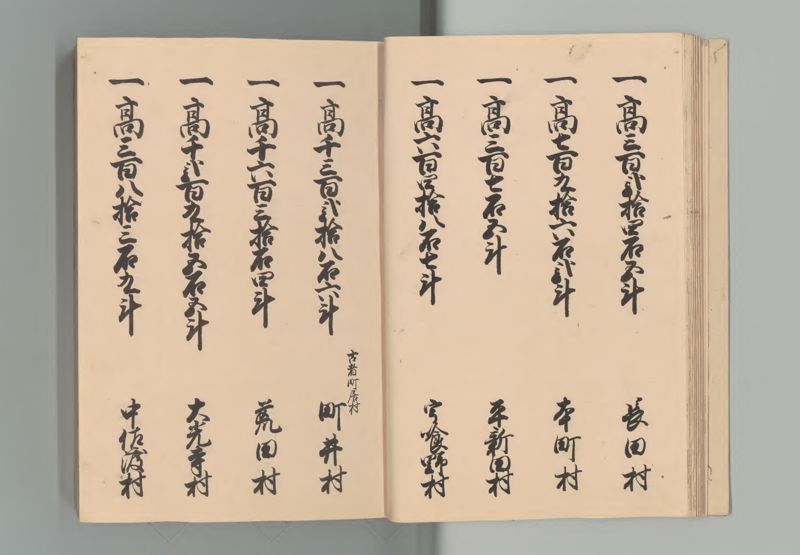 一高三百弐拾四石五斗 長田村
一高七百九拾六石弐斗 本町村
一高三百七石五斗 平新田村
一高六百四拾八石七斗 宇喰野村
一高千三百弐拾八石六斗 町井村
古者町居村
一高千六百三拾石四斗 荒田村
一高千弐百九拾五石五斗 大光寺村
一高三百八拾三石九斗 中佐渡村